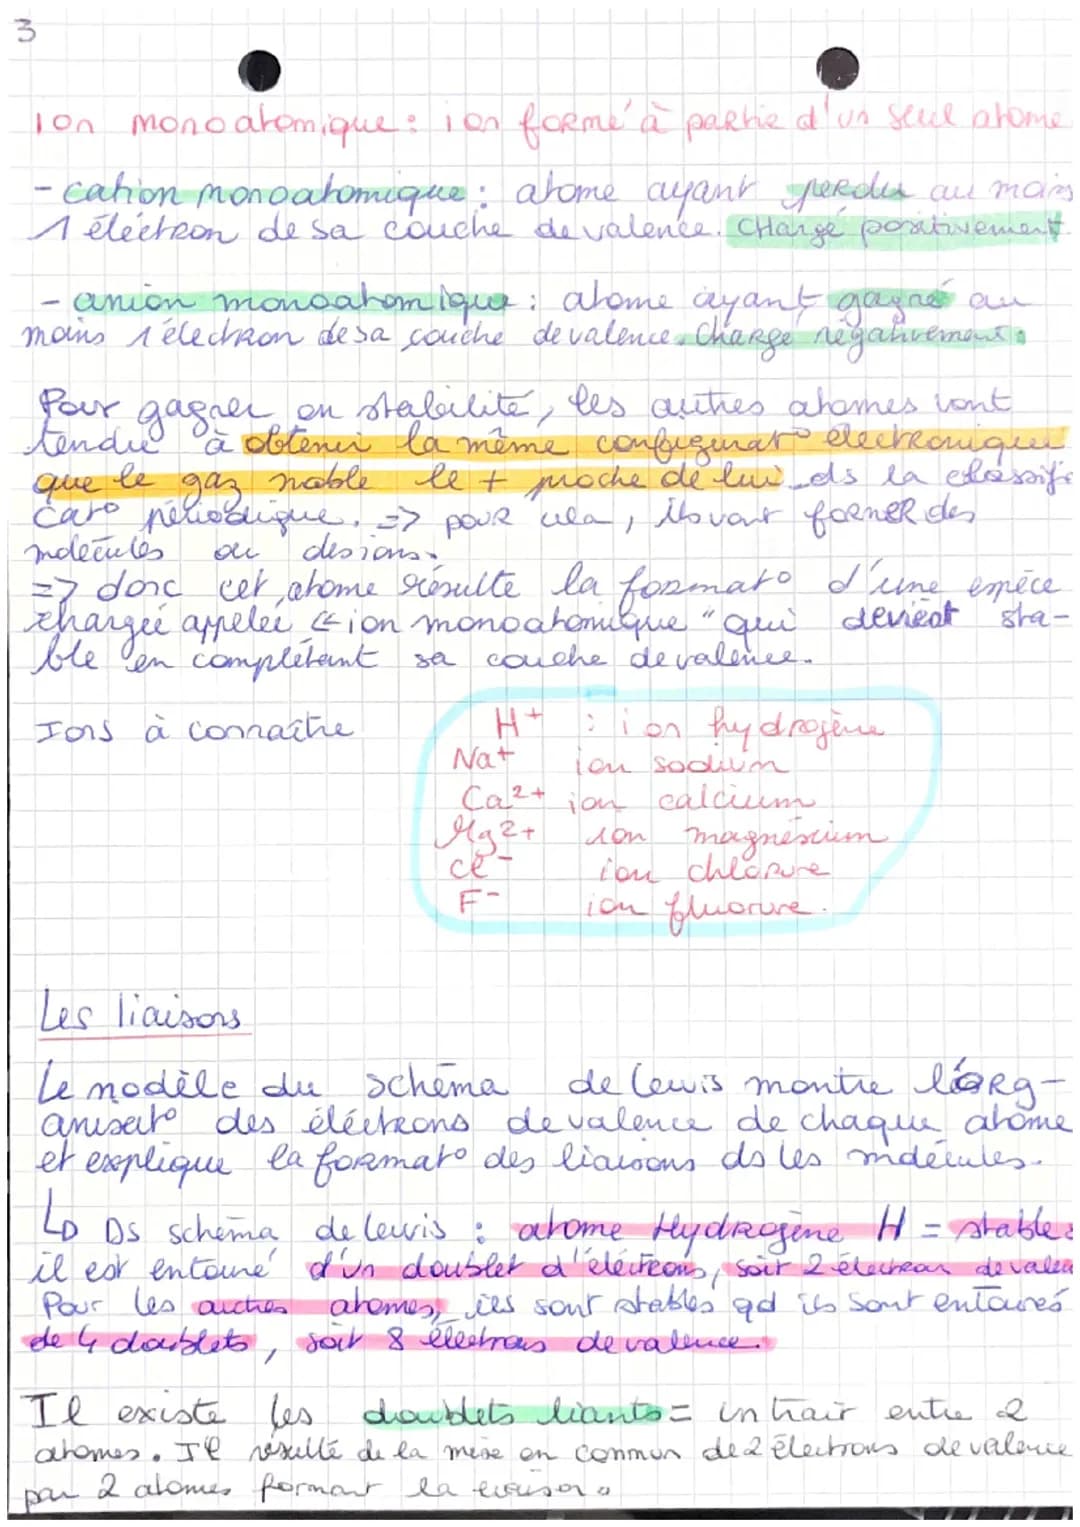 3
ion monoatomique : ion formé à partie d'un seul atome
- cation monoatomique : atome ayant perdu au moins
1 éléctron de sa couche de valence. Chargé positivement.
- anion monoatomique : atome ayant gagné au
moins 1 électron de sa couche de valence. Charge négativement.
Pour gagner en stabilité, les autres atomes vont
tendre à obtenir la même configurat° électronique
que le gaz noble le + proche de lui ds la classifi-
cat° périodique. => pour cela, ils vont former des
molécules ou des ions.
=> donc cet atome résulte la format° d'une espèce
chargée appelée « ion monoatomique " qui devient sta-
ble en complétant sa couche de valence.
Ions à connaître
H+ : ion hydrogène
Na+ ion sodium
Ca2+ ion calcium
Mg2+ ion magnésium
Cl- ion chlorure
F- ion fluorure.
Les liaisons
Le modèle du schéma de Lewis montre l'org-
anisat° des éléctrons de valence de chaque atome
et explique la format° des liaisons ds les molécules.
↳ Ds schéma de lewis : atome Hydrogène H = stable :
il est entouré d'un doublet d'éléctrons, soit 2 électrons de valen
Pour les autres atomes, ils sont stables qd ils sont entourés
de 4 doublets, soit 8 électrons de valence.
Il existe les doublets liants = un trait entre 2
atomes. Il résulte de la mise en commun de 2 électrons de valence
par 2 atomes formant la liaison.